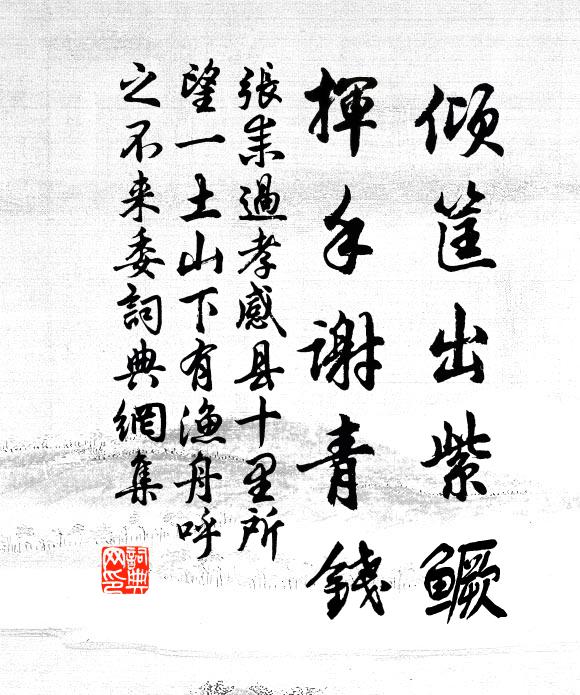 傾筐出紫鳜
揮手謝青錢
張耒過孝感县十里所
望一土山下有漁舟呼
之不来委詞典網集
詞典网印